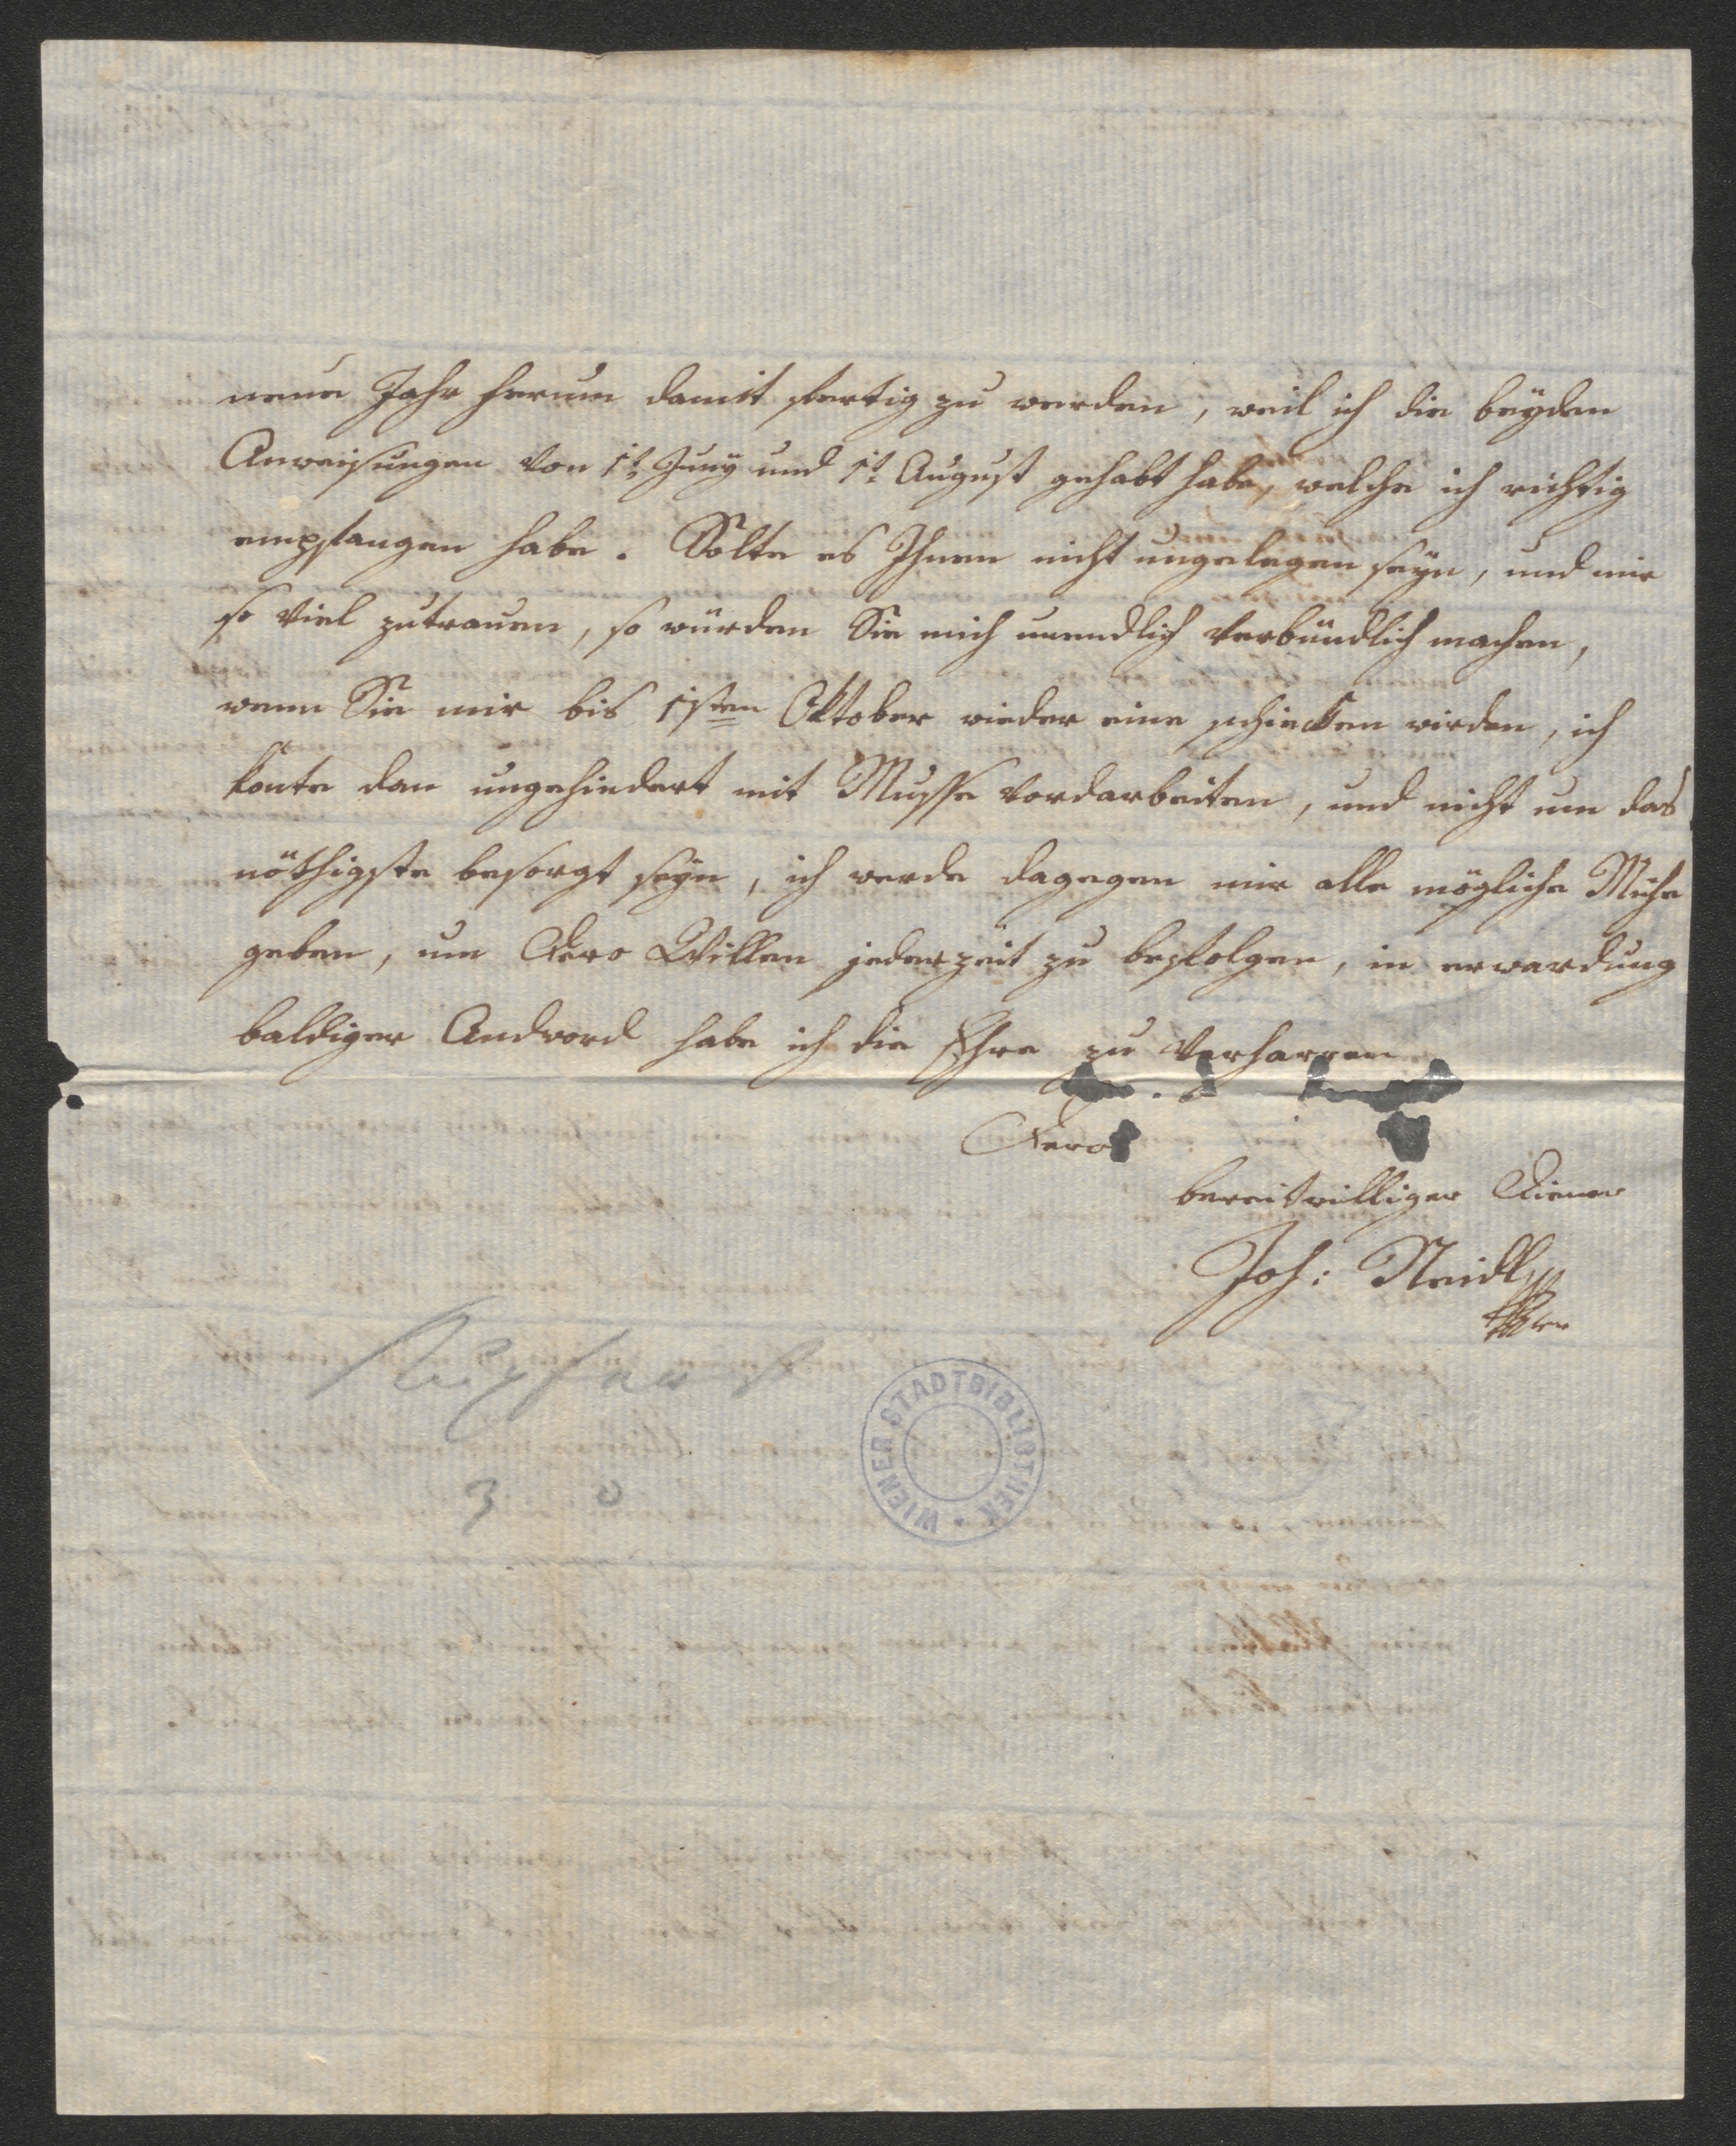 neue Jahr herum damit fertig zu werden, weil ich die beyden
Anweisungen von 1t Juny und 1t August gehabt habe, welche ich richtig
empfangen habe. Solte es Ihnen nicht ungelegen seyn, und mir
so viel zutrauen, so würden Sie mich unendlich verbündlich machen,
wenn Sie mir bis 1sten Oktober wieder eine schicken wirden, ich
könte dan ungehindert mit Musse vordarbeiten, und nicht um das
nöthigste besorgt seyn, ich werde dagegen mir alle mögliche Mühe
geben, um Dero Willen jederzeit zu befolgen, in erwardung
baldiger Andword habe ich die Ehre zu verharren
Dero
bereitwilliger Diener
Joh: Neidl
Kupfer
3 0
WIENER STADTBIBLIOTHEK